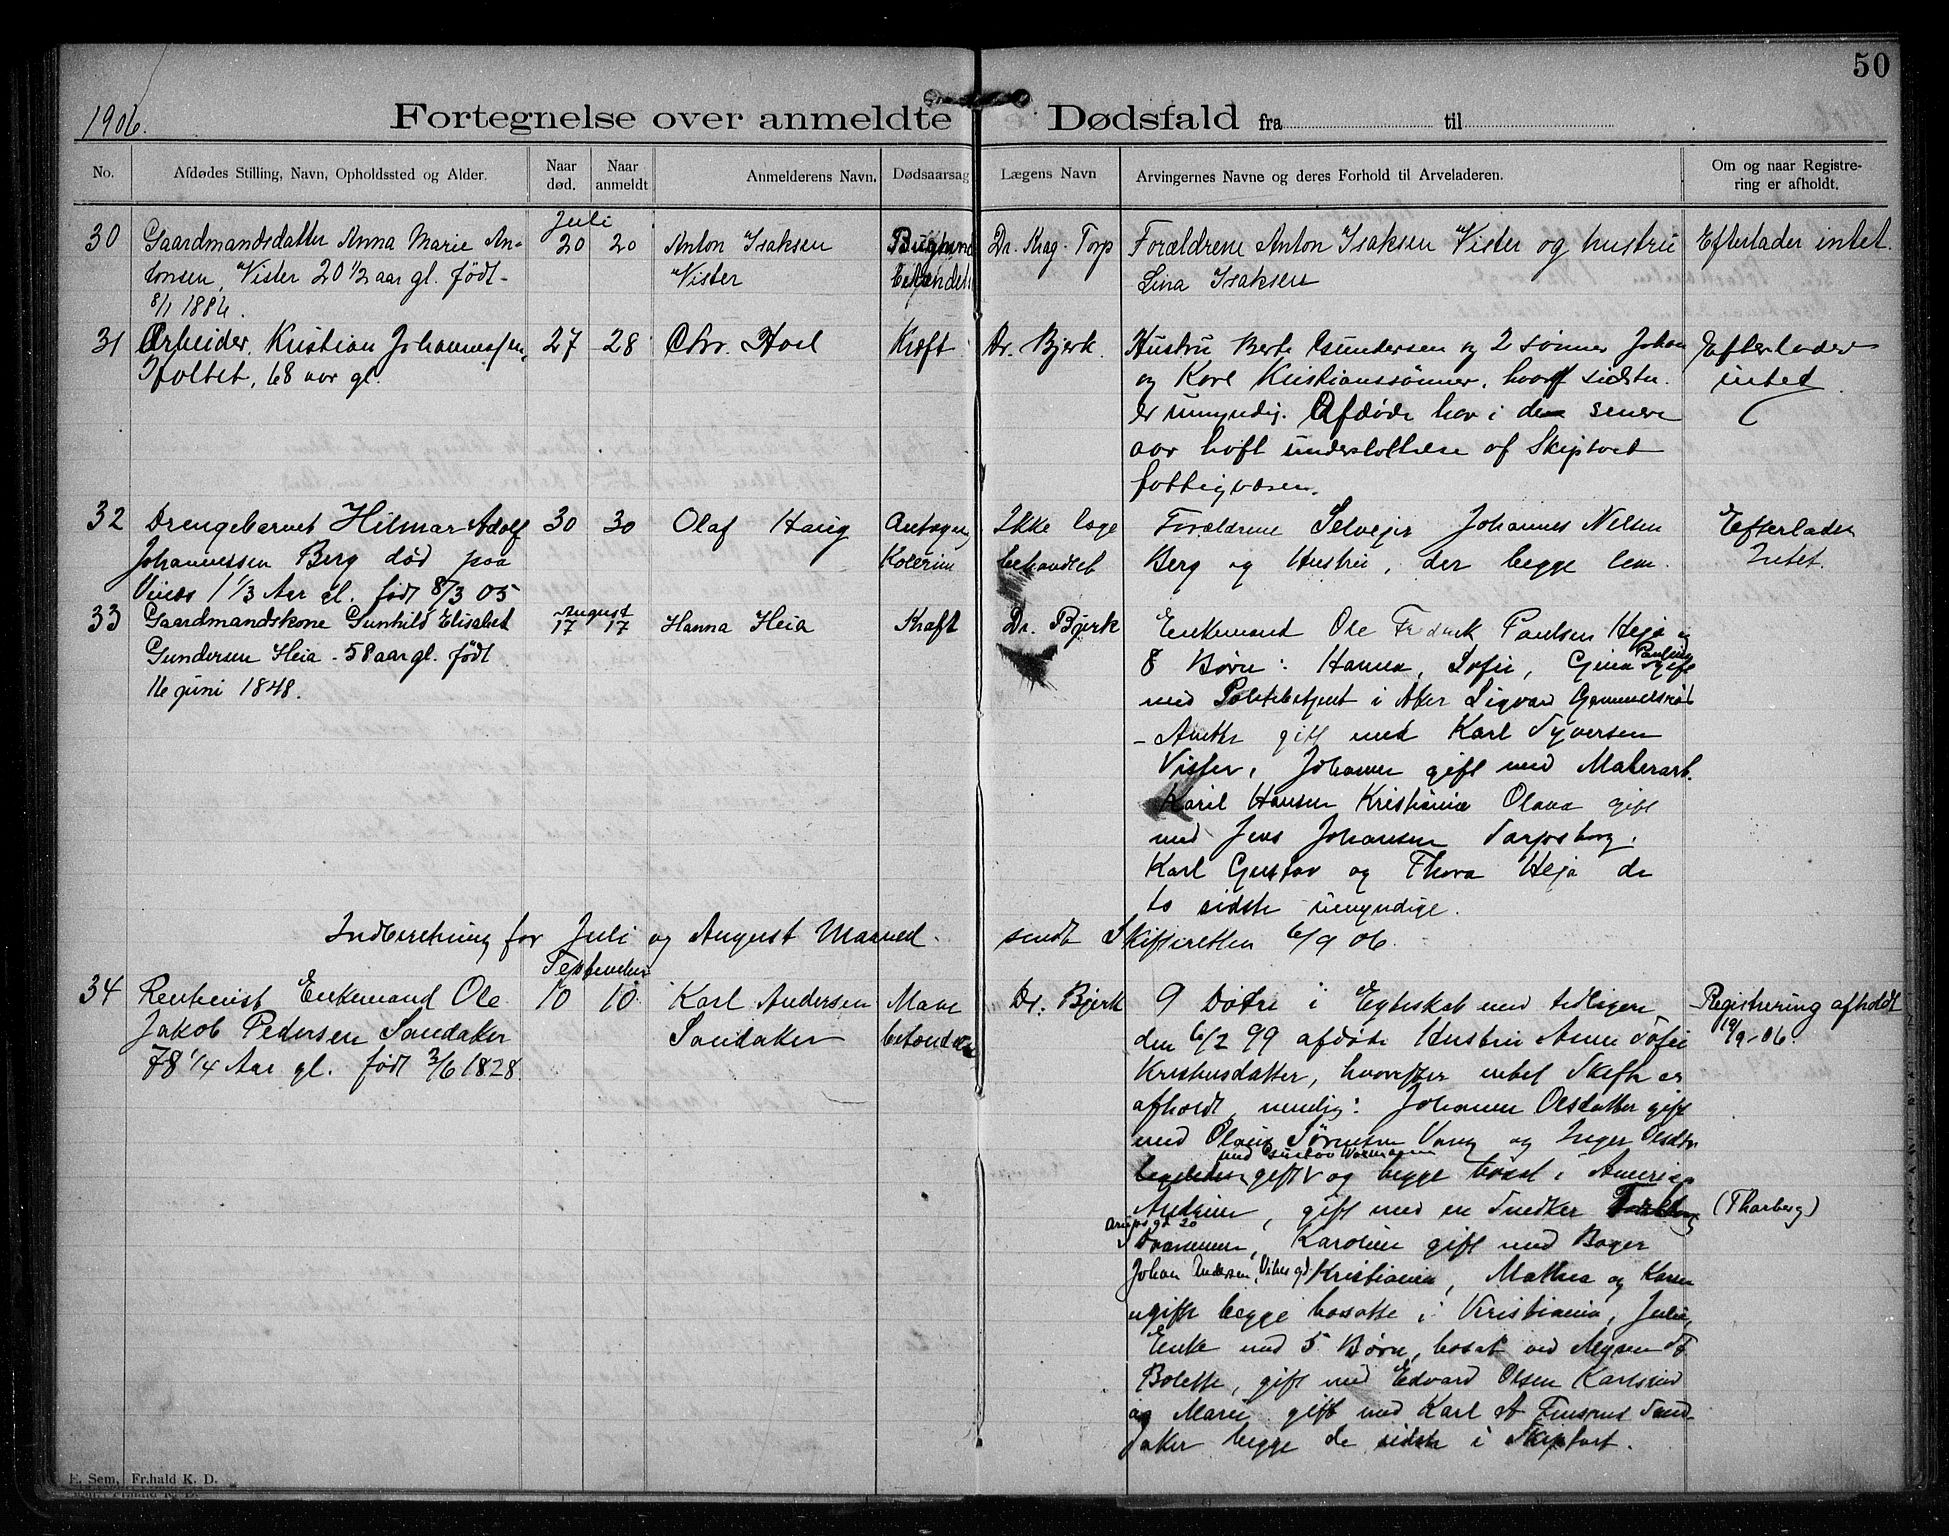 50
1906.
Fortegnelse over anmeldte Dødsfald fra til
No. Afdødes Stilling, Navn, Opholdssted og Alder. Naar død. Naar anmeldt Anmelderens Navn. Dødsaarsag Lægens Navn Arvingernes Navne og deres Forhold til Arveladeren. Om og naar Registrering er afholdt.
Juli
30 Gaardmandsdatter Anna Marie An- 20 20 Anton Isaksen Dr. Krag-Torp Forældrene Anton Isaksen Vister og hustru Efterlader intet.
tonsen, Vister 20 1/2 aar gl. født Vister Lina Isaksen
8/1 1886.
31 Arbeider, Kristian Johannessen, 27 28 Chr. Hoel Kræft Dr. Bjerk. Hustru Berte Gundersen og 2 sønner Johan Efterlader
68 aar gl. og Karl Kristianssønner, hvoraf sidstn. intet
er umyndig. Afdøde har i de senere
aar haft understøttelse af Skiptvet
fattigvæsen.
32 Drengebarnet Hilmar Adolf 30 30 Olaf Haug Antagen Ikke læge Forældrene Selveier Johannes Nilsen Efterlader
Johannessen Berg død paa Kolerine behandlet Berg og Hustru, der begge leve. Intet.
1 1/3 Aar gl. født 8/3 05
August
33 Gaardmandskone Gunhild Elisabet 17 17 Hanna Heia Kræft Dr. Bjerk Enkemand Ole Fredrik Paulsen Heja og
Gundersen Heia - 58 aar gl. født 8 Børn: Hanna, Sofie, Gina Pauline gift
16 juni 1848. med Politibetjent i Aker Sigvard Gammelsrød
- Anette gift med Karl Syversen
Vister, Johanne gift med Malerarb.
Karil Hansen Kristiania Olava gift
med Jens Johansen Sarpsborg.
Karl Gustav og Thora Heja de
to sidste umyndige.
Indberetning for Juli og August Maaned sendt Skifteretten 6/9 06.
September
34 Rentenist Enkemand Ole 10 10 Karl Andersen Mave Dr. Bjerk 9 Døtre i Egteskab med tidligere Registrering afholdt
Jakob Pedersen Sandaker Sandaker betændelse den 6/2 99 afdøde Hustru Anne Sofie 19/9-06.
78 1/4 Aar gl. født 2/6 1828. Kristensdatter, hvorefter intet Skifte er
afholdt, nemlig: Johanne Olsdatter gift
med Olaus Sørensen Vang og Inger Olsdtr
med Gustav
gift og begge bosat i Amerika
Andrine, gift med en Snedker (Thorberg)
Drammen, Karoline gift med Bager
Johan Andersen, Kristiania, Mathea og Karen
ugifte begge bosatte i Kristiania, Julie,
Enke med 5 Børn, bosat ved Mysen St
Bolette, gift med Edvard Olsen Karlsrud
og Marie gift med Karl A Sand-
aker begge de sidste i Skiptvet.
E. Sem, Fr.hald K. D.